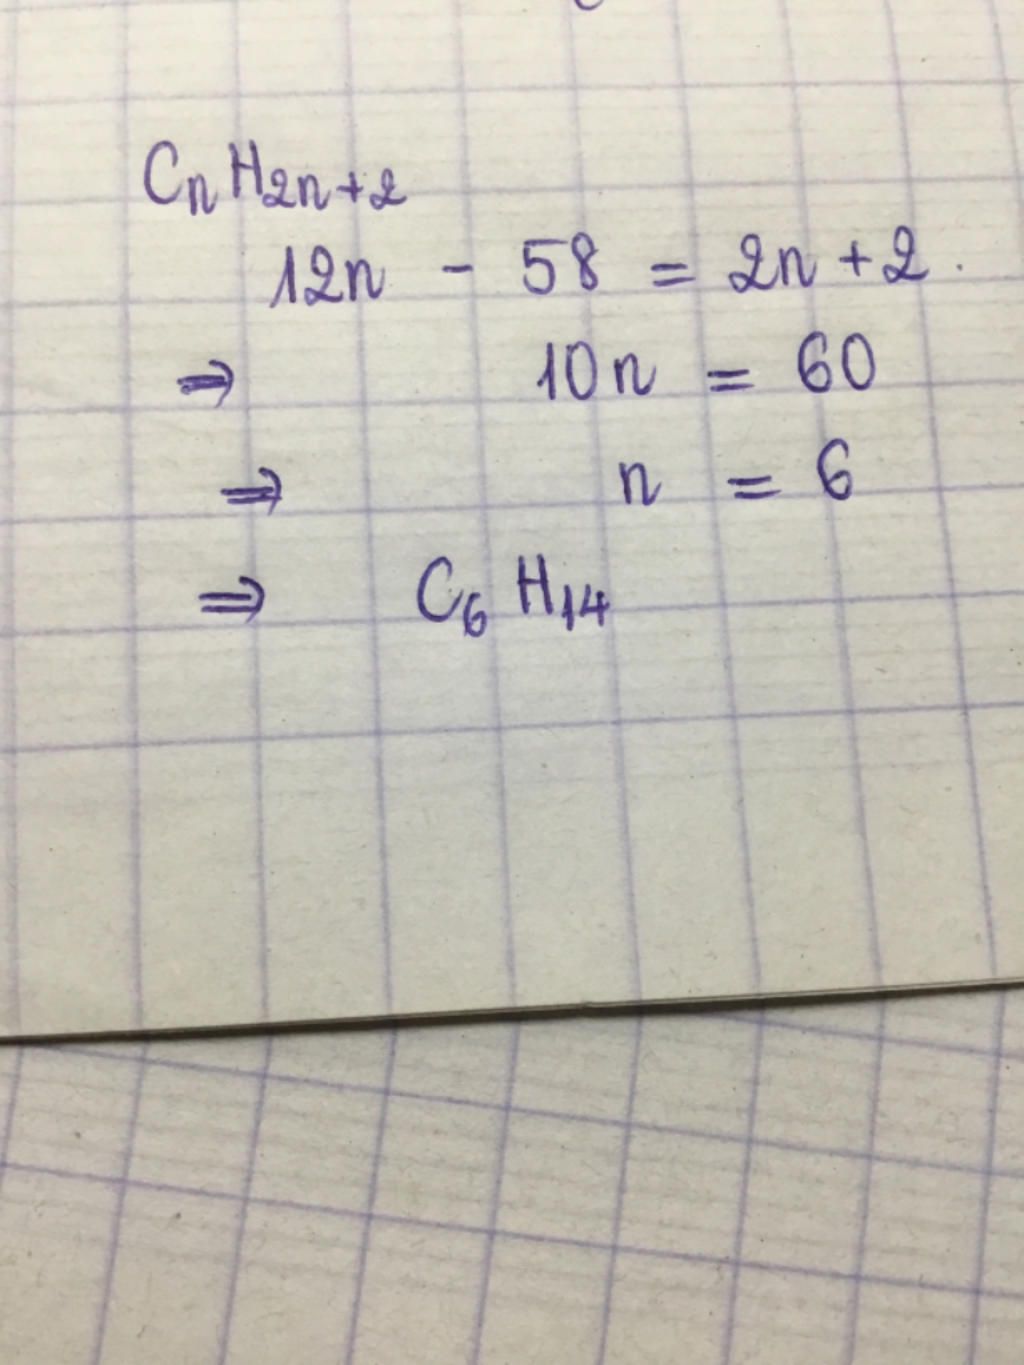 CnH2n+2
12n - 58 = 2n + 2.
⇒ 10n = 60
⇒ n = 6
⇒ C6H14